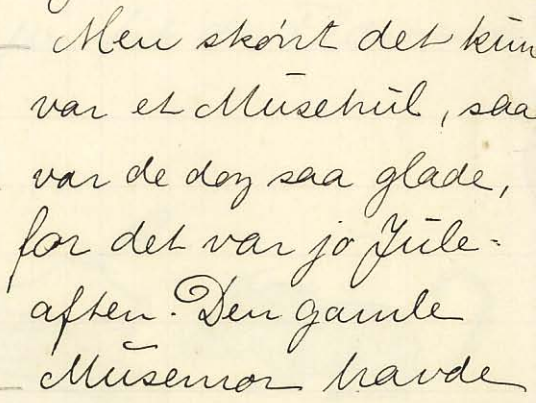 Men skönt det kun
var et Musehul, saa
var de dog saa glade,
for det var jo Jule-
aften. Den gamle
Musemor havde